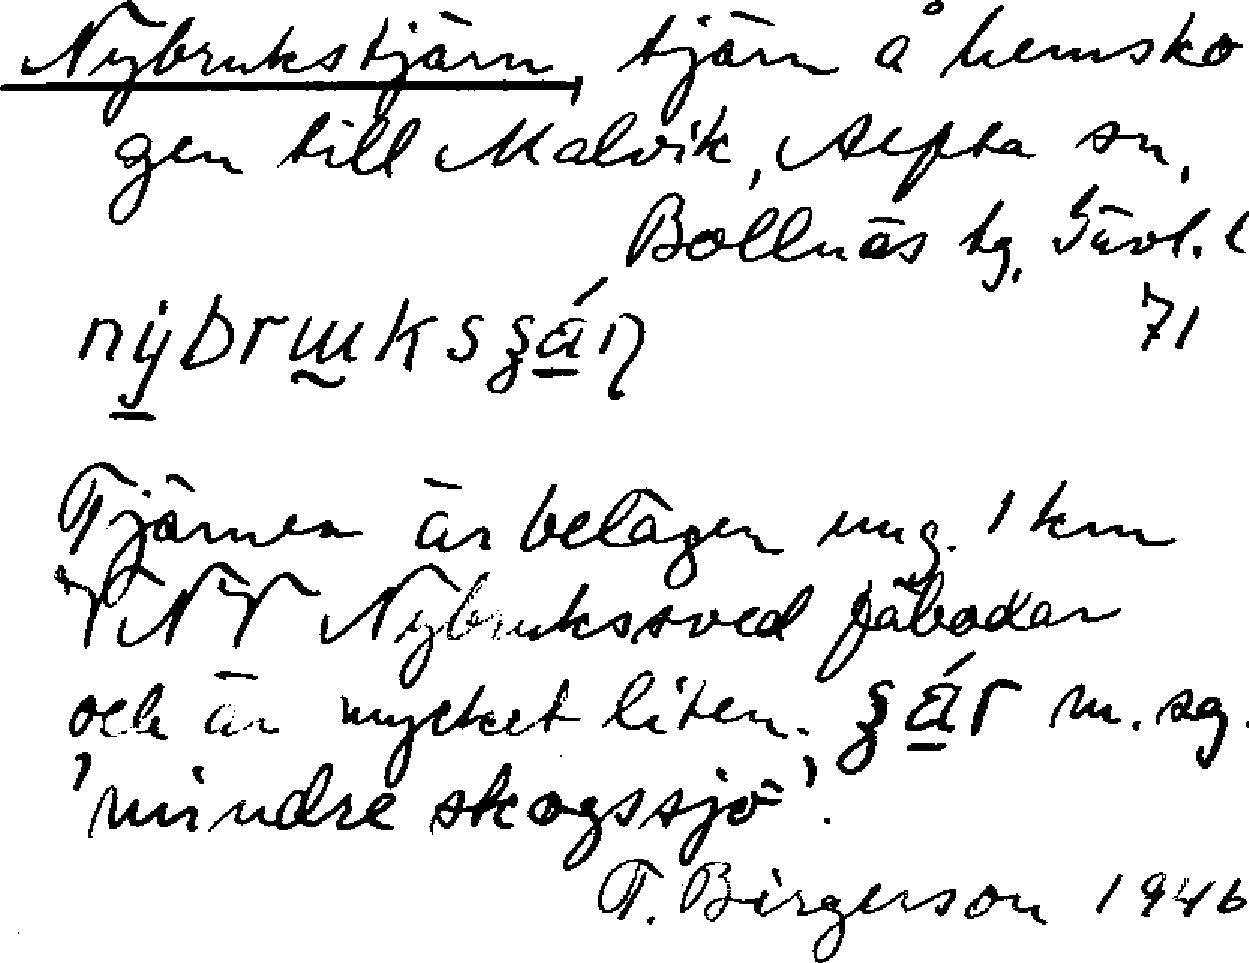 Nybrukstjärn, tjärn å hemsko
gen till Malvik, Alfta sn,
Bollnäs tg, Gävl. l
71
Tjärnen är belägen ung. 1 km
VNV Nybrukssved fäbodar
och är mycket liten. m. sg.
'mindre skogssjö'.
T. Birgerson 1946